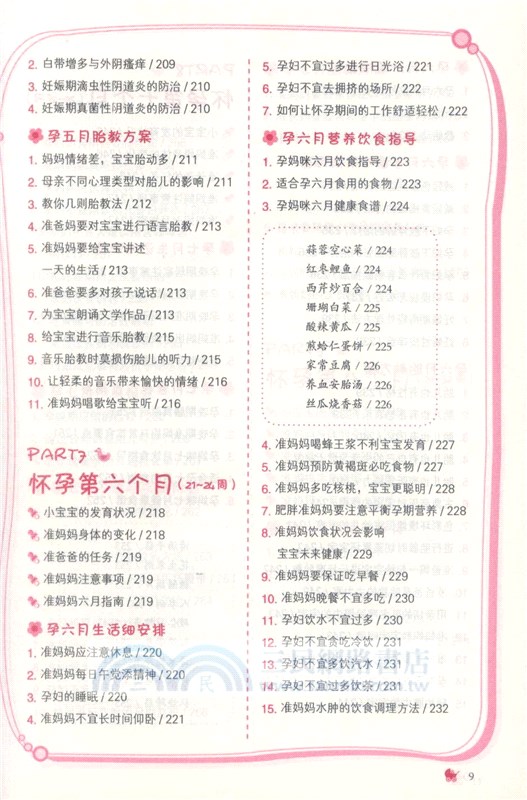 2. 白带增多与外阴瘙痒 / 209
3. 妊娠期滴虫性阴道炎的防治 / 210
4. 妊娠期真菌性阴道炎的防治 / 210
孕五月胎教方案
1. 妈妈情绪差，宝宝胎动多 / 211
2. 母亲不同心理类型对胎儿的影响 / 211
3. 教你几则胎教法 / 212
4. 准爸妈要对宝宝进行语言胎教 / 213
5. 准妈妈要给宝宝讲述
一天的生活 / 213
6. 准爸爸要多对孩子说话 / 213
7. 为宝宝朗诵文学作品 / 213
8. 给宝宝进行音乐胎教 / 215
9. 音乐胎教时莫损伤胎儿的听力 / 215
10. 让轻柔的音乐带来愉快的情绪 / 216
11. 准妈妈唱歌给宝宝听 / 216
PART7
怀孕第六个月（21~24周）
小宝宝的发育状况 / 218
准妈妈身体的变化 / 218
准爸爸的任务 / 219
准妈妈注意事项 / 219
准妈妈六月指南 / 219
孕六月生活细安排
1. 准妈妈应注意休息 / 220
2. 准妈妈每日午觉添精神 / 220
3. 孕妇的睡眠 / 220
4. 准妈妈不宜长时间仰卧 / 221
5. 孕妇不宜过多进行日光浴 / 221
6. 孕妇不宜去拥挤的场所 / 222
7. 如何让怀孕期间的工作舒适轻松 / 222
孕六月营养饮食指导
1. 孕妈咪六月饮食指导 / 223
2. 适合孕六月食用的食物 / 223
3. 孕妈咪六月健康食谱 / 224
蒜蓉空心菜 / 224
红枣鲤鱼 / 224
西芹炒百合 / 224
珊瑚白菜 / 225
酸辣黄瓜 / 225
煎蛤仁蛋饼 / 225
家常豆腐 / 226
养血安胎汤 / 226
丝瓜烧香菇 / 226
4. 准妈妈喝蜂王浆不利宝宝发育 / 227
5. 准妈妈预防黄褐斑必吃食物 / 227
6. 准妈妈多吃核桃，宝宝更聪明 / 228
7. 肥胖准妈妈要注意平衡孕期营养 / 228
8. 准妈妈饮食状况会影响
宝宝未来健康 / 229
9. 准妈妈要保证吃早餐 / 229
10. 准妈妈晚餐不宜多吃 / 230
11. 孕妇饮水不宜过多 / 230
12. 孕妇不宜贪吃冷饮 / 231
13. 孕妇不宜多饮汽水 / 231
14. 孕妇不宜过多饮茶 / 231
15. 准妈妈水肿的饮食调理方法 / 232
三民網路書店
三民
www.sanmin.com.tw
9